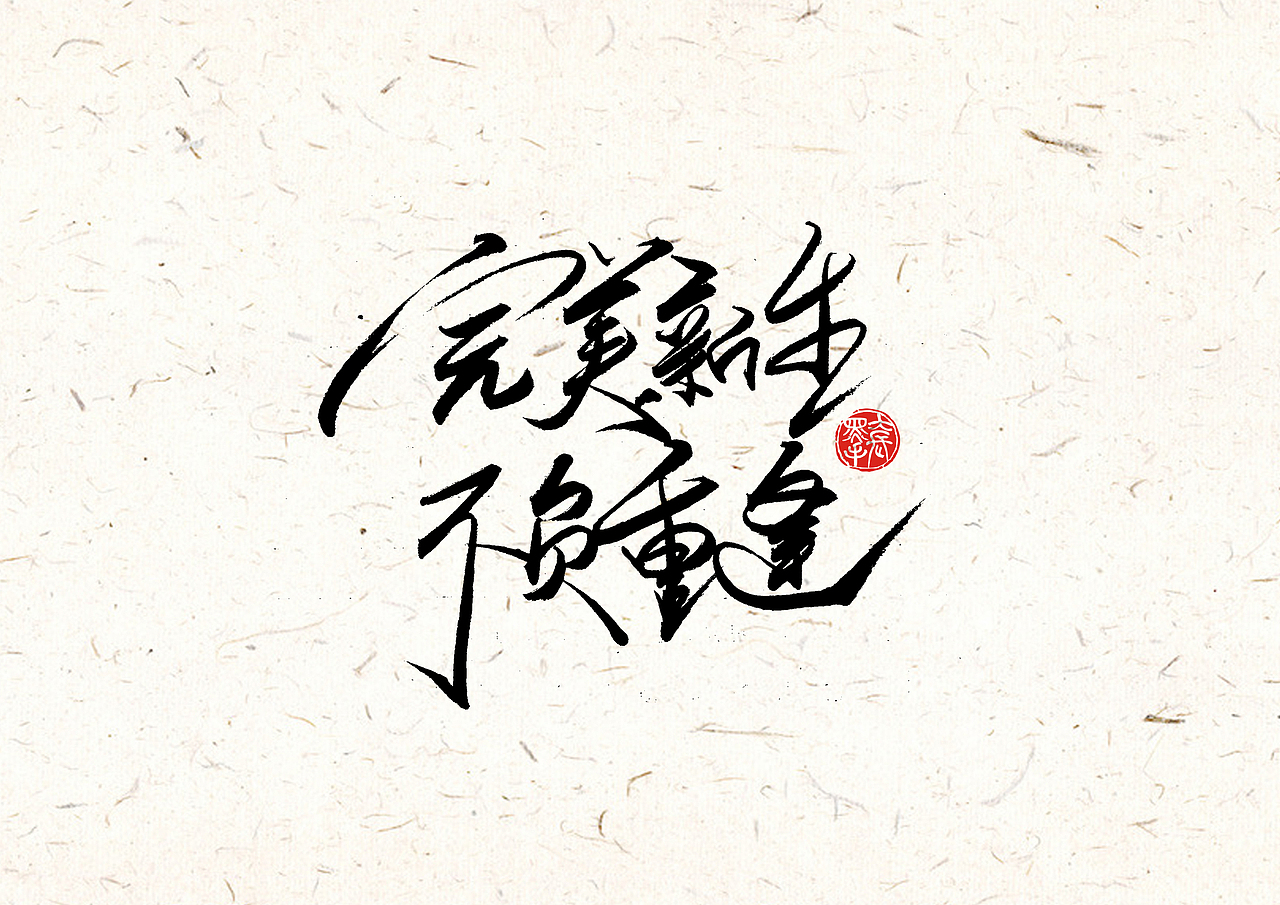 完美新生
不负重逢